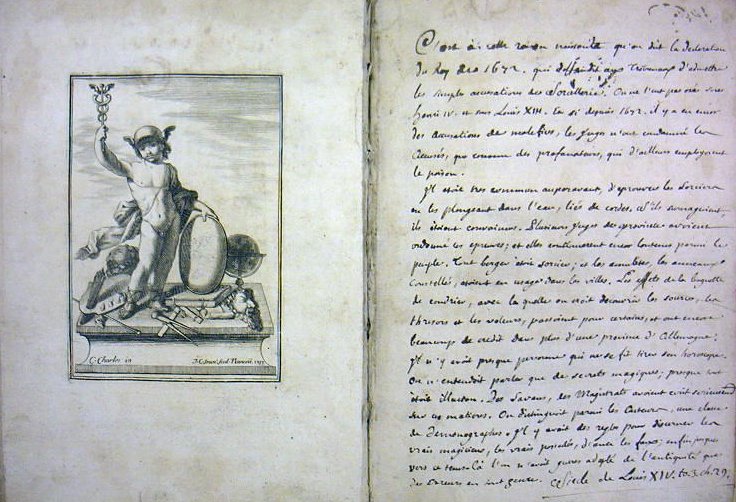 C. Charles in
C'est à cette raison naissante qu'on dut la declaration
du Roy de 1672. qui deffendit aux Tribunaux d'admettre
les simples accusations de Sorcellerie. On ne l'eut pas osé sous
henri IV. et sous Louis XIII. Et si depuis 1672. il y a eu encor
des accusations de malefices, les juges n'ont condamné les
accusés, que comme des profanateurs, qui d'ailleurs employoient
le poison.
Il etoit tres commun auparavant, d'eprouver les Sorciers
en les plongeant dans l'eau, liés de cordes, s'ils surnageoient
ils étoient convaincus. Plusieurs juges de province avoient
ordonné ces epreuves; et elles continuerent encor lontems parmi le
peuple. Tout berger étoit sorcier; et les amulettes, les anneaux
constellés, étoient en usage dans les villes. Les effets de la baguette
de coudrier, avec laquelle on croit decouvrir les sources, les
thresors et les voleurs, passoient pour certains, et ont encore
beaucoup de credit dans plus d'une province d'Allemagne;
Il n'y avoit presque personne qui ne se fit tirer son horoscope.
On n'entendoit parler que de secrets magiques, presque tout
étoit illusion. Des Savans, des Magistrats avoient ecrit serieusement
sur ces matieres. On distinguoit parmi les Auteurs, une classe
de Demonographes. Il y avoit des regles pour discerner les
vrais magiciens, les vrais possedés, d'avec les faux; enfin jusques
vers ce tems là l'on n'avoit gueres adopté de l'antiquité que
des erreurs en tout genre. Siecle de Louis XIV. to. 3. ch. 29.